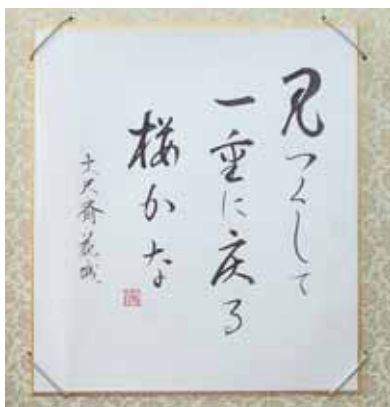 見つくして
一重に戻る
桜かな